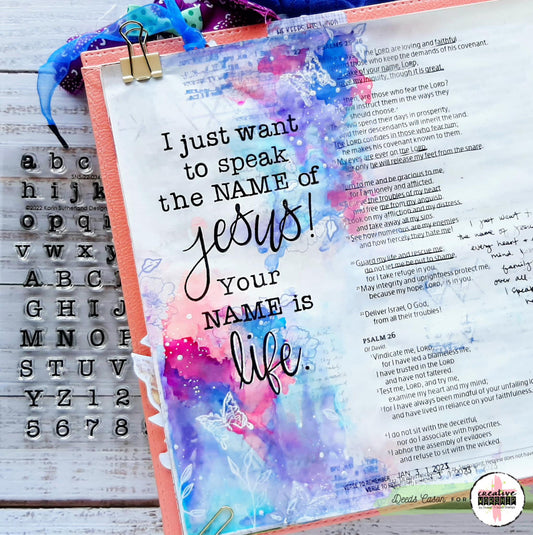 I just want
to speak
the NAME of
jesus!
Your
NAME is
life.
a b c
h i j k
o p q
v w x y
A B C
G H I J
M N O P
S T U V
Y Z 1 2
5 6 7 8
©2022 Karin Sutherland Designs
the LORD are loving and faithful
those who keep the demands of his covenant.
of your name, LORD,
my iniquity, though it is great.
then, are those who fear the LORD?
will instruct them in the ways they
should choose.
spend their days in prosperity,
and their descendants will inherit the land.
The LORD confides in those who fear him;
he makes his covenant known to them.
My eyes are ever on the LORD,
only he will release my feet from the snare.
Turn to me and be gracious to me,
for I am lonely and afflicted.
the troubles of my heart
and free me from my anguish.
Look on my affliction and my distress
and take away all my sins.
See how numerous are my enemies
and how fiercely they hate me!
Guard my life and rescue me;
do not let me be put to shame,
for I take refuge in you.
May integrity and uprightness protect me,
because my hope, LORD, is in you.
22 Deliver Israel, O God,
from all their troubles!
PSALM 26
Of David.
1 Vindicate me, LORD,
for I have led a blameless life;
I have trusted in the LORD
and have not faltered.
2 Test me, LORD, and try me,
examine my heart and my mind;
3 for I have always been mindful of your unfailing lo
and have lived in reliance on your faithfulness.
4 I do not sit with the deceitful,
nor do I associate with hypocrites.
5 I abhor the assembly of evildoers
and refuse to sit with the wicked.
I just want t
the name of Jesus
every heart +
mind
family
over all
I speak
JAN 3 1 2023
VERSE TO REMEMBER
Deeds Cason FOR
creative